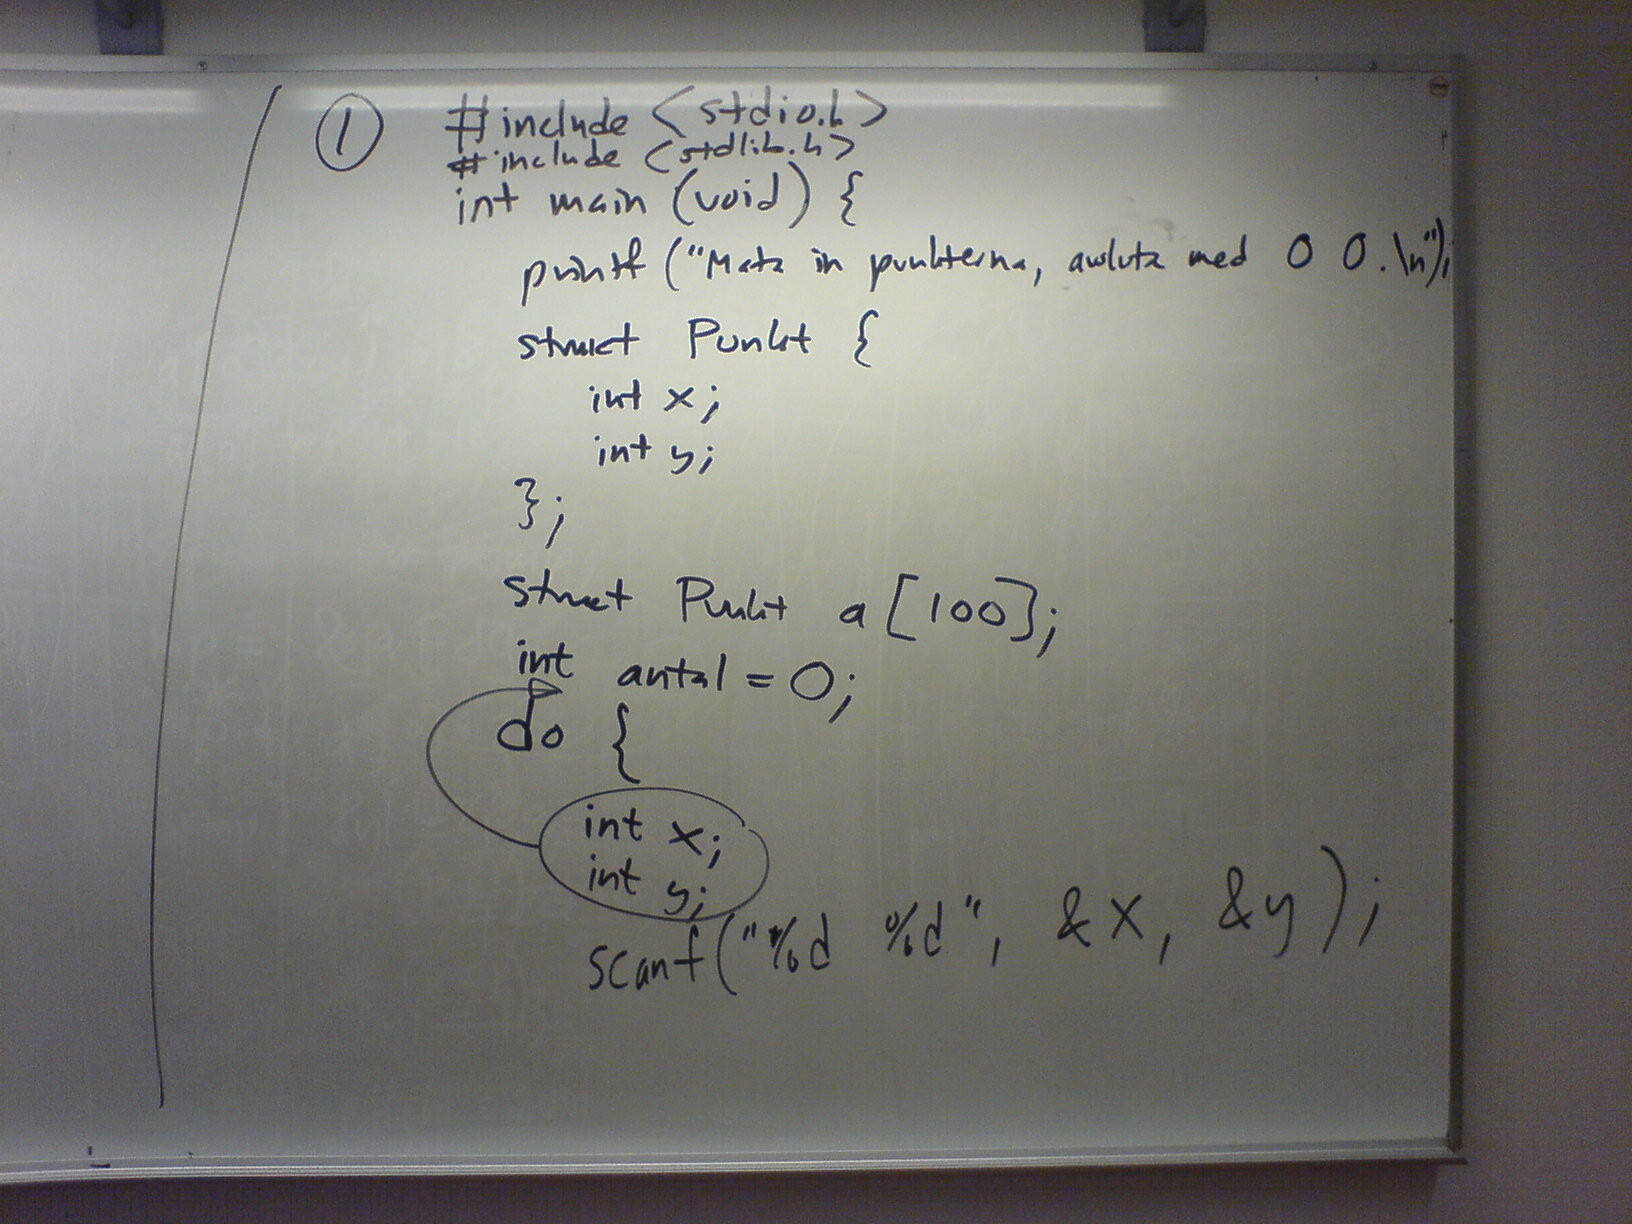 ① #include <stdio.h>
#include <stdlib.h>
int main (void) {
printf ("Mata in punkterna, avsluta med 0 0.\n");
struct Punkt {
int x;
int y;
};
struct Punkt a [100];
int antal = 0;
do {
int x;
int y;
scanf("%d %d", &x, &y);